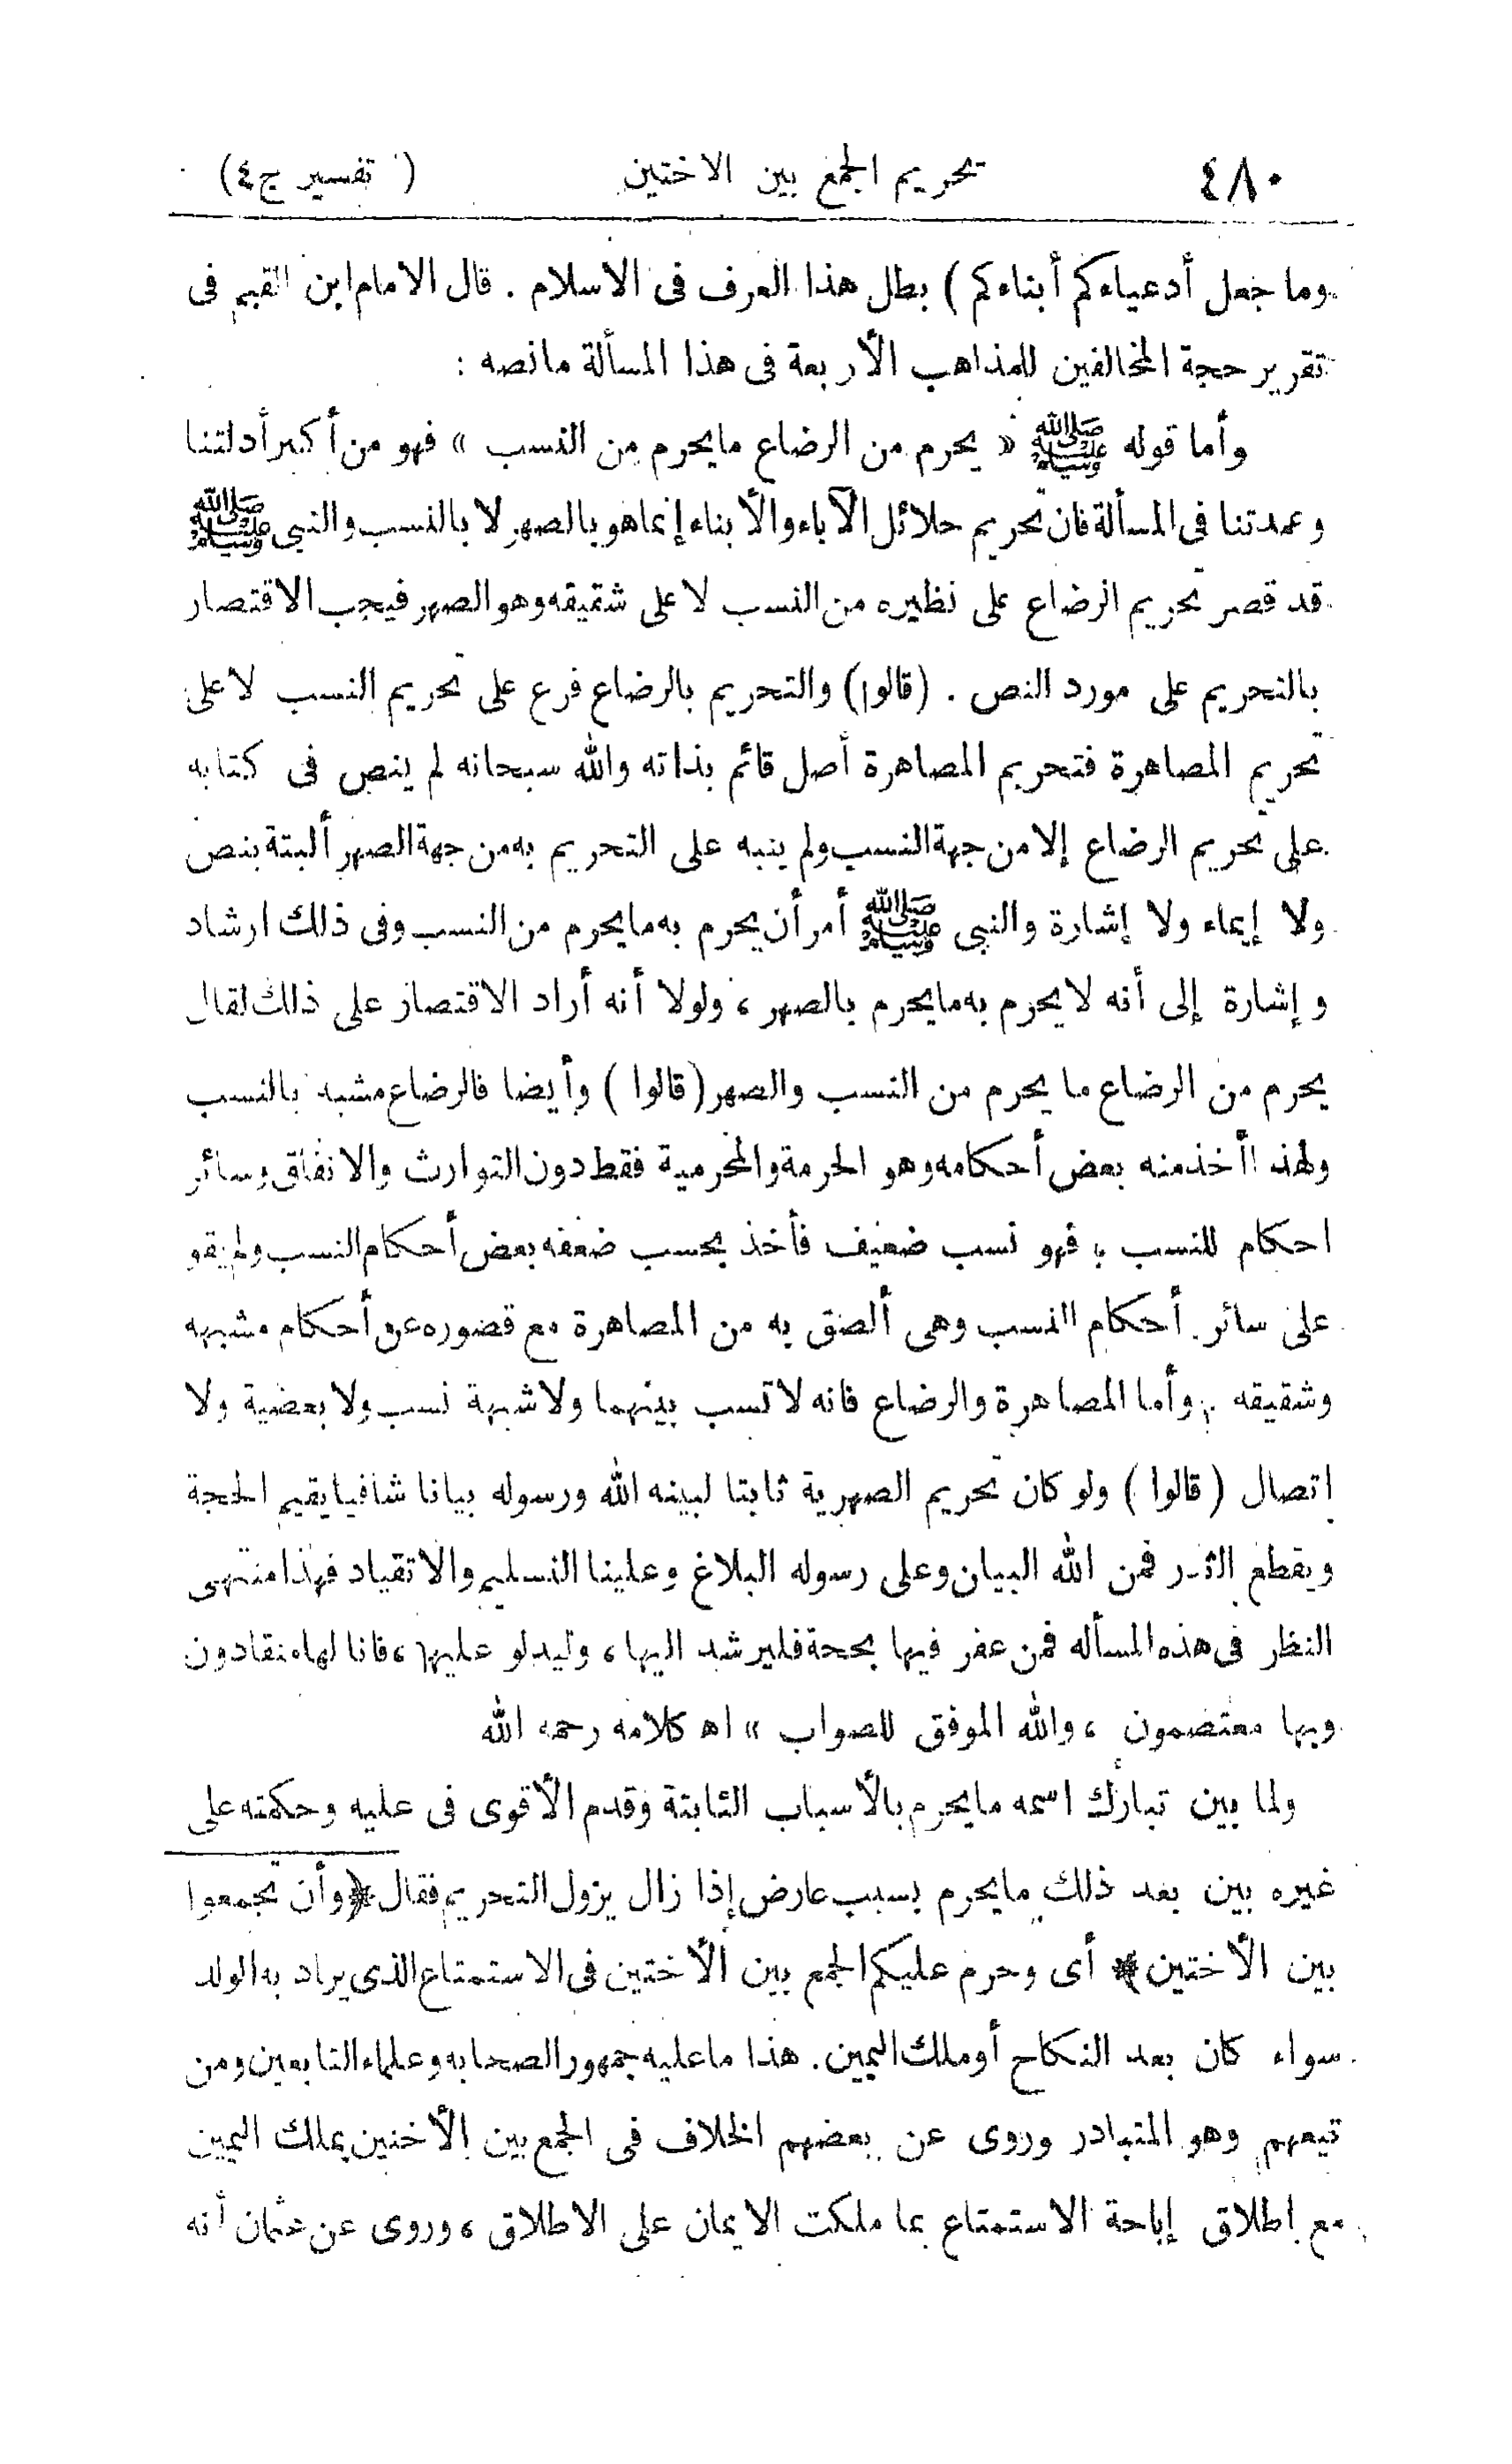 ٤٨٠ تحريم الجمع بين الاختين ( تفسير ج٤ )
وما جعل أدعياءكم أبناءكم ) بطل هذا العرف فى الاسلام . قال الامام ابن القيم فى
تقرير حجة المخالفين للمذاهب الأربعة فى هذا المسألة مانصه :
وأما قوله ﷺ « يحرم من الرضاع مايحرم من النسب » فهو من أكبر أدلتنا
وعمدتنا فى المسألة فان تحريم حلائل الآباء والأبناء إنماهو بالصهر لا بالنسب والنبى ﷺ
قد قصر تحريم الرضاع على نظيره من النسب لا على شقيقه وهو الصهر فيجب الاقتصار
بالتحريم على مورد النص . (قالوا) والتحريم بالرضاع فرع على تحريم النسب لا على
تحريم المصاهرة فتحريم المصاهرة أصل قائم بذاته والله سبحانه لم ينص فى كتابه
على تحريم الرضاع إلا من جهة النسب ولم ينبه على التحريم به من جهة الصهر ألبتة بنص
ولا إيماء ولا إشارة والنبى ﷺ أمر أن يحرم به مايحرم من النسب وفى ذلك ارشاد
وإشارة إلى أنه لا يحرم به مايحرم بالصهر ، ولولا أنه أراد الاقتصار على ذلك لقال
يحرم من الرضاع ما يحرم من النسب والصهر (قالوا ) وأيضا فالرضاع مشبه بالنسب
ولهذا أخذ منه بعض أحكامه وهو الحرمة والمحرمية فقط دون التوارث والانفاق وسائر
احكام للنسب ، فهو نسب ضعيف فأخذ بحسب ضعفه بعض أحكام النسب ولم يقو
على سائر أحكام النسب وهى ألصق به من المصاهرة مع قصوره عن أحكام مشبهه
وشقيقه . وأما المصاهرة والرضاع فانه لا نسب بينهما ولا شبهة نسب ولا بعضية ولا
اتصال ( قالوا ) ولو كان تحريم الصهرية ثابتا لبينه الله ورسوله بيانا شافيا يقيم الحجة
ويقطع فمن الله البيان وعلى رسوله البلاغ وعلينا التسليم والانقياد فهذا منتهى
النظر فى هذه المسأله فمن عفر فيها بحجة فليرشد اليها ، وليدلو عليها ، فانا لها منقادون
وبها معتصمون ، والله الموفق للصواب » اه كلامه رحمه الله
ولما بين تبارك اسمه مايحرم بالأسباب الثابتة وقدم الأقوى فى عليه وحكمته على
غيره بين بعد ذلك مايحرم بسبب عارض إذا زال يزول التحريم فقال ﴿ وأن تجمعوا
بين الأختين ﴾ أى وحرم عليكم الجمع بين الأختين فى الاستمتاع الذى يراد به الولد
سواء كان بعد النكاح أو ملك اليمين . هذا ما عليه جمهور الصحابه وعلماء التابعين ومن
تبعهم وهو المتبادر وروى عن بعضهم الخلاف فى الجمع بين الأختين بملك اليمين
مع إطلاق إباحة الاستمتاع بما ملكت الايمان على الاطلاق ، وروى عن عثمان أنه